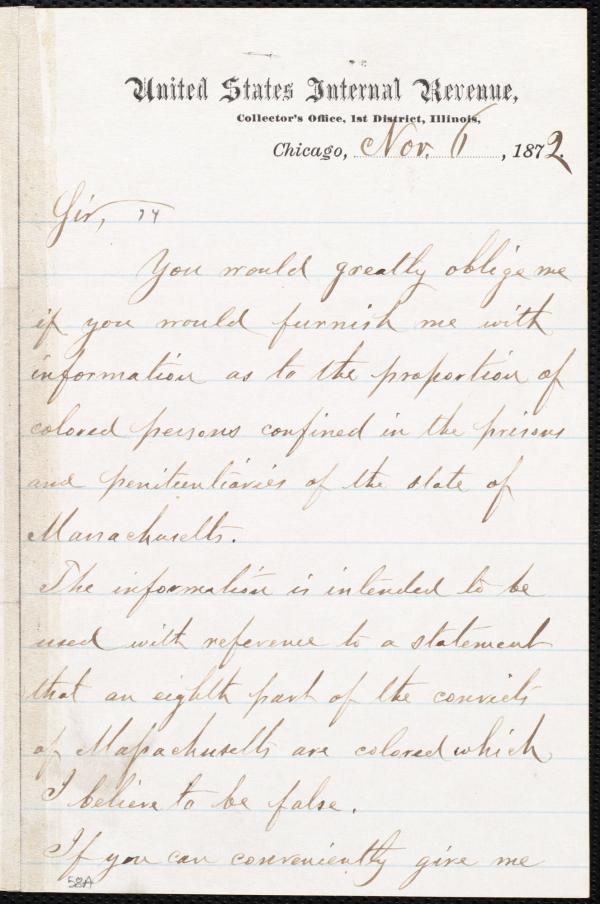 United States Internal Revenue,
Collector's Office, 1st District, Illinois,
Chicago, Nov. 6, 1872.
Sir,
74
You would greatly oblige me
if you would furnish me with
information as to the proportion of
colored persons confined in the prisons
and penitentiaries of the state of
Massachusetts.
The information is intended to be
used with reference to a statement
that an eighth part of the convicts
of Massachusetts are colored which
I believe to be false.
If you can conveniently give me
58A